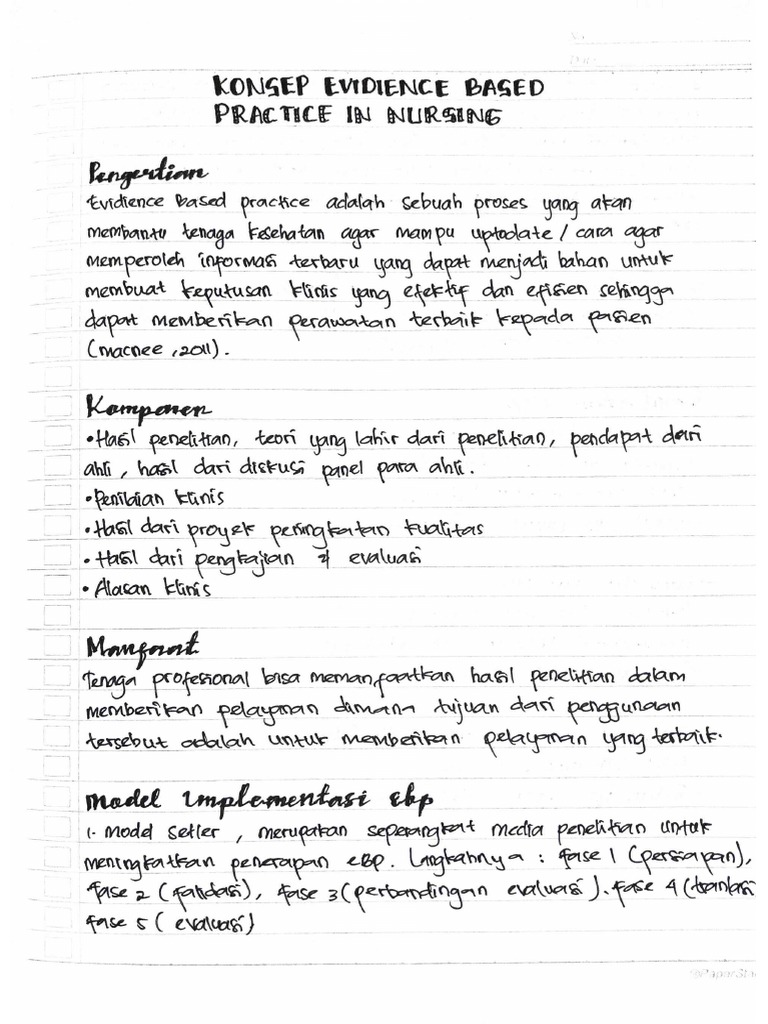 No
Date
KONSEP EVIDIENCE BASED
PRACTICE IN NURSING
Pengertian
Evidience Based practice adalah sebuah proses yang akan
membantu tenaga kesehatan agar mampu uptodate / cara agar
memperoleh informasi terbaru yang dapat menjadi bahan untuk
membuat keputusan klinis yang efektif dan efisien sehingga
dapat memberikan perawatan terbaik kepada pasien
(macnee ,2011).
Komponen
• Hasil penelitian, teori yang lahir dari penelitian, pendapat dari
ahli, hasil dari diskusi panel para ahli.
• Penilaian klinis
• Hasil dari proyek peningkatan kualitas
• Hasil dari pengkajian & evaluasi
• Alasan klinis
Manfaat
Tenaga profesional bisa memanfaatkan hasil penelitian dalam
memberikan pelayanan dimana tujuan dari penggunaan
tersebut adalah untuk memberikan pelayanan yang terbaik.
Model Implementasi ebp
1. Model Setler , merupakan seperangkat media penelitian untuk
meningkatkan penerapan eBP. Langkahnya : fase 1 (persiapan),
fase 2 (falidasi), fase 3 (perbandingan evaluasi). fase 4 (tranlasi
fase 5 ( evaluasi)
@PaperSta